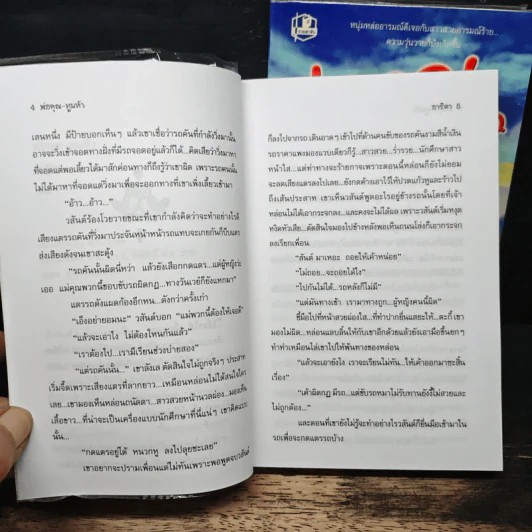 หนุ่มหล่ออารมณ์ดีเจอกับสาวสวยอารมณ์ร้าย...
ความวุ่นวายก็บังเกิดขึ้น
4 พ่อคุณ-ทูนหัว
เลนหนึ่ง มีป้ายบอกเห็นๆ แล้วเขาเชื่อว่ารถคันที่กำลังวิ่งมานั้น
อาจจะวิ่งเข้าจอดทางฝั่งที่มีรถจอดอยู่แล้วก็ได้...คิดเสียว่าวิ่งมาหา
ที่จอดแต่พอเลี้ยวได้มาสักค่อนทางก็ถึงรู้ว่าเขาผิด เพราะรถคันนั้น
ไม่ได้มาหาที่จอดแต่วิ่งมาเพื่อจะออกทางที่เขาเพิ่งเลี้ยวเข้ามา
“อ้าว...อ้าว...”
วสันต์ร้องโวยวายขณะที่เขากำลังคิดว่าจะทำอย่างไรได้
เสียงแตรรถคันที่วิ่งมาประจันหุ่นหน้ารถแทบจะเกยกันก็บีบแตร
ส่งเสียงดังจนเขาสะดุ้ง
“รถคันนั้นผิดนี่หว่า แล้วยังเสือกกดแตร...แต่ผู้หญิงว่ะ
เออ แม่คุณพวกนี้ชอบขับรถผิดกฎ...ทางวันเวย์ก็ยังแหกมา”
แตรรถดังแผดก้องอีกหน...ดังกว่าครั้งเก่า
“เอ็งอย่ายอมนะ” วสันต์บอก “แม่พวกนี้ต้องให้เจอดี”
“แล้วจะเอาไง ไม่ต้องไหนกันแล้ว”
“เราต้องไป...เรามีเรียนช่วงบ่ายสอง”
“แต่รถคันนั้น...” เขาลังเล ตัดสินใจไม่ถูกจริงๆ ประสาท
เริ่มจี๊ดเพราะเสียงแตรที่ลากยาว...เหมือนหล่อนไม่ได้สนใจใคร
เลย...เขามองเห็นหล่อนถนัดตา...สาวสวยหน้านวลผ่อง...มองเห็น
เสื้อขาว...ที่น่าจะเป็นเครื่องแบบนักศึกษาที่นี่แน่ๆ เขาคิดแวบ
นั้น...
“กดแตรอยู่ได้ หนวกหู ลงไปลุยซะเลย”
เขาอยากจะปรามเพื่อนแต่ไม่ทันเพราะพอพูดจบวสันต์
ชาริดา 5
ก็ลงไปจากรถ เดินอาดๆ เข้าไปที่ด้านคนขับของรถคันงามสีน้ำเงิน
รถราคาแพงมองแวบเดียวก็รู้...สาวสวย...ร่ำรวย...นักศึกษาสาว
หน้าใส... แต่ท่าทางจะร้ายกาจเพราะตอนนี้หล่อนก็ยังไม่ยอม
จะลดเสียงแตรลงไปเลย...ยังกดค้างเอาไว้ให้ปวดแก้วหูและร้าวไป
ถึงเส้นประสาท เขาเห็นวสันต์พูดอะไรอยู่ข้างรถนั้นโดยที่เจ้า
หล่อนไม่ได้เอากระจกลง...และคงจะไม่ได้ผล เพราะวสันต์เริ่มหงุด
หงิดหัวเสีย...ตัดสินใจมองไปข้างหลังพอเห็นถนนโล่งก็เอากระจก
ลงเรียกเพื่อน
“สันต์ มาเหอะ ถอยให้เค้าหน่อย”
“ไม่ถอย...จะถอยได้ไง”
“ไปกันไม่ได้...รถหลังก็ไม่มี”
“แต่มันทางเข้า เรามาทางถูก...ผู้หญิงคนนี้ผิด”
ชี้มือไปที่หน้าสวยผ่องใส...ที่ทำปากยื่นแสยะให้...ตะกี้ เขา
มองไม่ผิด...หล่อนแลบลิ้นให้กับเขาอีกด้วยแล้วยังเอามือขึ้นยกๆ
ทำท่าเหมือนไล่เขาไปให้พ้นทางของหล่อน
“แล้วจะเอายังไง เราจะเรียนไม่ทัน...ให้เค้าออกมาซะสิ้น
เรื่อง”
“เค้าผิดกฎ มีรถ...แต่ขับรถหมาไม่รับทานยังงี้ไม่สวยและ
ไม่ถูกต้อง...”
และตอนที่เขายังไม่รู้จะทำอย่างไรวสันต์ก็ยื่นมือเข้ามาใน
รถเพื่อจะกดแตรรถบ้าง